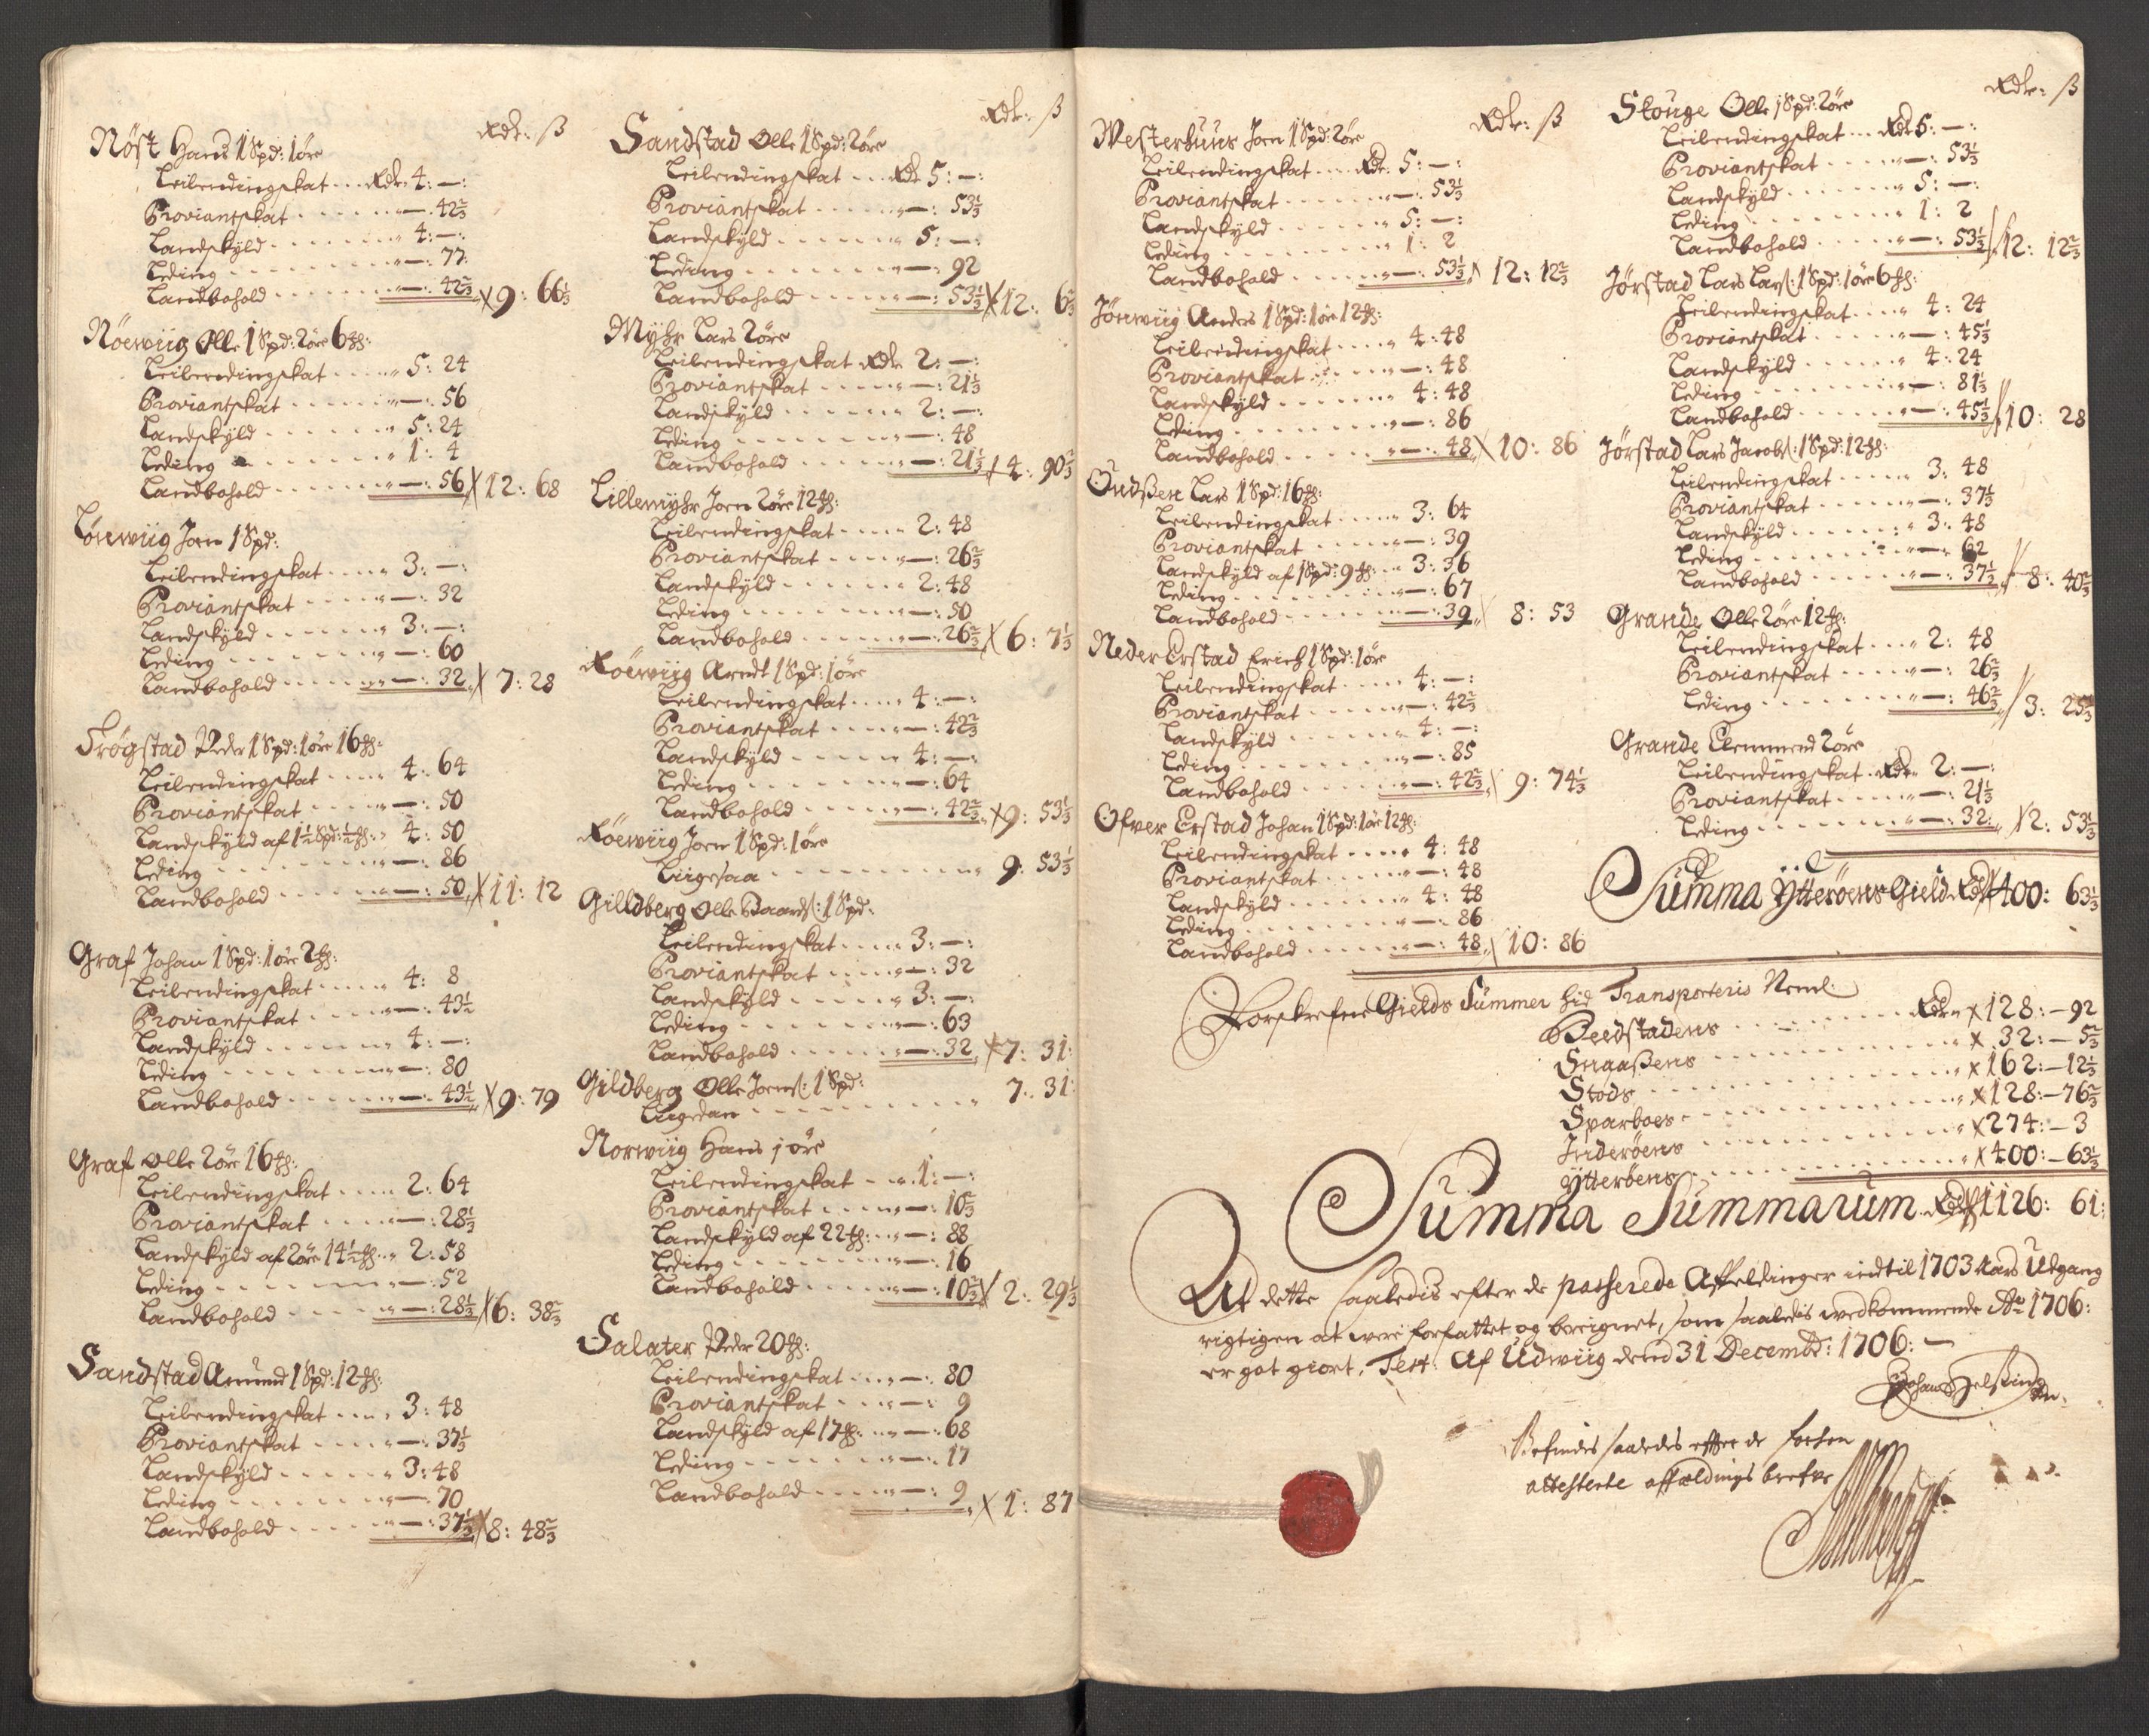 Rdr: ß
Nöst Hans 1 Spd: 1 öre
Leilendingskat ... Rdr. 4: —:
Proviantskat ... „ —: 42 2/3
Landskyld ... „ 4: —:
Leding ... „ —: 77:
Landbohold ... „ —: 42 2/3 X 9: 66 1/3
Nöewiig Olle 1 Spd: 2 öre 6 ℔:
Leilendingskat ... „ 5: 24
Proviantskat ... „ —: 56
Landskyld ... „ 5: 24
Leding ... „ 1: 4
Landbohold ... „ —: 56 X 12: 68
Lörewiig Joen 1 Spd:
Leilendingskat ... „ 3: —:
Proviantskat ... „ —: 32
Landskyld ... „ 3: —:
Leding ... „ —: 60
Landbohold ... „ —: 32 X 7: 28
Frögstad Peder 1 Spd: 1 öre 16 ℔:
Leilendingskat ... „ 4: 64
Proviantskat ... „ —: 50
Landskyld af 1 1/2 Spd: 1/2 ℔: „ 4: 50
Leding ... „ —: 86
Landbohold ... „ —: 50 X 11: 12
Graf Johan 1 Spd: 1 öre 2 ℔:
Leilendingskat ... „ 4: 8
Proviantskat ... „ —: 43 1/2
Landskyld ... „ 4: —:
Leding ... „ —: 80
Landbohold ... „ —: 43 1/2 X 9: 79
Graf Olle 2 öre 16 ℔:
Leilendingskat ... „ 2: 64
Proviantskat ... „ —: 28 1/3
Landskyld af 2 öre 14 1/2 ℔: „ 2: 58
Leding ... „ —: 52
Landbohold ... „ —: 28 1/3 X 6: 38 2/3
Sandstad Amund 1 Spd: 12 ℔:
Leilendingskat ... „ 3: 48
Proviantskat ... „ —: 37 1/3
Landskyld ... „ 3: 48
Leding ... „ —: 70
Landbohold ... „ —: 37 1/3 X 8: 48 2/3
Rdr: ß
Sandstad Olle 1 Spd: 2 öre
Leilendingskat ... Rdr 5: —:
Proviantskat ... „ —: 53 1/3
Landskyld ... „ 5: —:
Leding ... „ —: 92
Landbohold ... „ —: 53 1/3 X 12: 6 2/3
Myhr Lars 2 öre
Leilendingskat Rdr 2: —:
Proviantskat ... „ —: 21 1/3
Landskyld ... „ 2: —:
Leding ... „ —: 48
Landbohold ... „ —: 21 1/3 X 4: 90 2/3
Lillemyhr Joen 2 öre 12 ℔:
Leilendingskat ... „ 2: 48
Proviantskat ... „ —: 26 2/3
Landskyld ... „ 2: 48
Leding ... „ —: 50
Landbohold ... „ —: 26 2/3 X 6: 7 1/3
Röewiig Arndt 1 Spd: 1 öre
Leilendingskat ... „ 4: —:
Proviantskat ... „ —: 42 2/3
Landskyld ... „ 4: —:
Leding ... „ —: 64
Landbohold ... „ —: 42 2/3 X 9: 53 1/3
Röewiig Joen 1 Spd: 1 öre
Liigesaa ... „ 9: 53 1/3
Gilldberg Olle Baards: 1 Spd:
Leilendingskat ... „ 3: —:
Proviantskat ... „ —: 32
Landskyld ... „ 3: —:
Leding ... „ —: 63
Landbohold ... „ —: 32 X 7: 31:
Gildberg Olle Joens: 1 Spd:
Liigedan ... „ 7: 31:
Norwiig Hans 1 öre
Leilendingskat ... „ 1: —:
Proviantskat ... „ —: 10 2/3
Landskyld af 22 ℔: ... „ —: 88
Leding ... „ —: 16
Landbohold ... „ —: 10 2/3 X 2: 29 1/3
Salater Peder 20 ℔:
Leilendingskat ... „ —: 80
Proviantskat ... „ —: 9
Landskyld af 17 ℔: ... „ —: 68
Leding ... „ —: 17
Landbohold ... „ —: 9 X 1: 87
Rdr: ß
Westerhuus Joen 1 Spd: 2 öre
Leilendingskat ... Rdr. 5: —:
Proviantskat ... „ —: 53 1/3
Landskyld ... „ 5: —:
Leding ... „ 1: 2
Landbohold ... „ —: 53 1/3 X 12: 12 2/3
Jönewiig Anders 1 Spd: 1 öre 12 ℔:
Leilendingskat ... „ 4: 48
Proviantskat ... „ —: 48
Landskyld ... „ 4: 48
Leding ... „ —: 86
Landbohold ... „ —: 48 X 10: 86
Oudßen Lars 1 Spd: 16 ℔:
Leilendingskat ... „ 3: 64
Proviantskat ... „ —: 39
Landskyld af 1 Spd: 9 ℔: „ 3: 36
Leding ... „ —: 67
Landbohold ... „ —: 39 X 8: 53
Neder Erstad Erich 1 Spd: 1 öre
Leilendingskat ... „ 4: —:
Proviantskat ... „ —: 42 2/3
Landskyld ... „ 4: —:
Leding ... „ —: 85
Landbohold ... „ —: 42 2/3 X 9: 74 1/3
Ofver Erstad Johan 1 Spd: 1 öre 12 ℔:
Leilendingskat ... „ 4: 48
Proviantskat ... „ —: 48
Landskyld ... „ 4: 48
Leding ... „ —: 86
Landbohold ... „ —: 48 X 10: 86
Rdr: ß
Skouge Olle 1 Spd: 2 öre
Leilendingskat ... Rdr 5: —:
Proviantskat ... „ —: 53 1/3
Landskyld ... „ 5: —:
Leding ... „ 1: 2
Landbohold ... „ —: 53 1/3 X 12: 12 2/3
Jörstad Lars Lars: 1 Spd: 1 öre 6 ℔:
Leilendingskat ... „ 4: 24
Proviantskat ... „ —: 45 1/3
Landskyld ... „ 4: 24
Leding ... „ —: 81 1/3
Landbohold ... „ —: 45 1/3 X 10: 28
Jörstad Lars Jacobs: 1 Spd: 12 ℔:
Leilendingskat ... „ 3: 48
Proviantskat ... „ —: 37 1/3
Landskyld ... „ 3: 48
Leding ... „ —: 62
Landbohold ... „ —: 37 1/3 X 8: 40 2/3
Grande Olle 2 öre 12 ℔:
Leilendingskat ... „ 2: 48
Proviantskat ... „ —: 26 2/3
Leding ... „ —: 46 2/3 X 3: 25 1/3
Grande Clemmend 2 öre
Leilendingskat. Rdr „ 2: —:
Proviantskat ... „ —: 21 1/3
Leding ... „ —: 32: X 2: 53 1/3
Summa Ytteröens Gield Rdr X 400: 63 1/3
Forskrefne Gields Summer hid Transporteris Neml:
Beedstadens ... Rdr X 128: — 92
Snaaßens ... X 32: — 5 2/3
Stods ... X 162: — 12 1/3
Sparboes ... X 128: — 76 2/3
Inderöens ... X 274: — 3
Ytteröens ... X 400: — 63 1/3
Summa Summarum Rdr X 1126: 61:
At dette saaledis efter de passerede Affeldinger indtil 1703 Aars Udgang
rigtigen at were forfattet og bereignet, som saaledis wedkommende Ao 1706:
er got giort, Test: Af Udwiig dend 31 Decembr: 1706: —
Befindes saaledes efter de forhen
attesterte affældings brefve